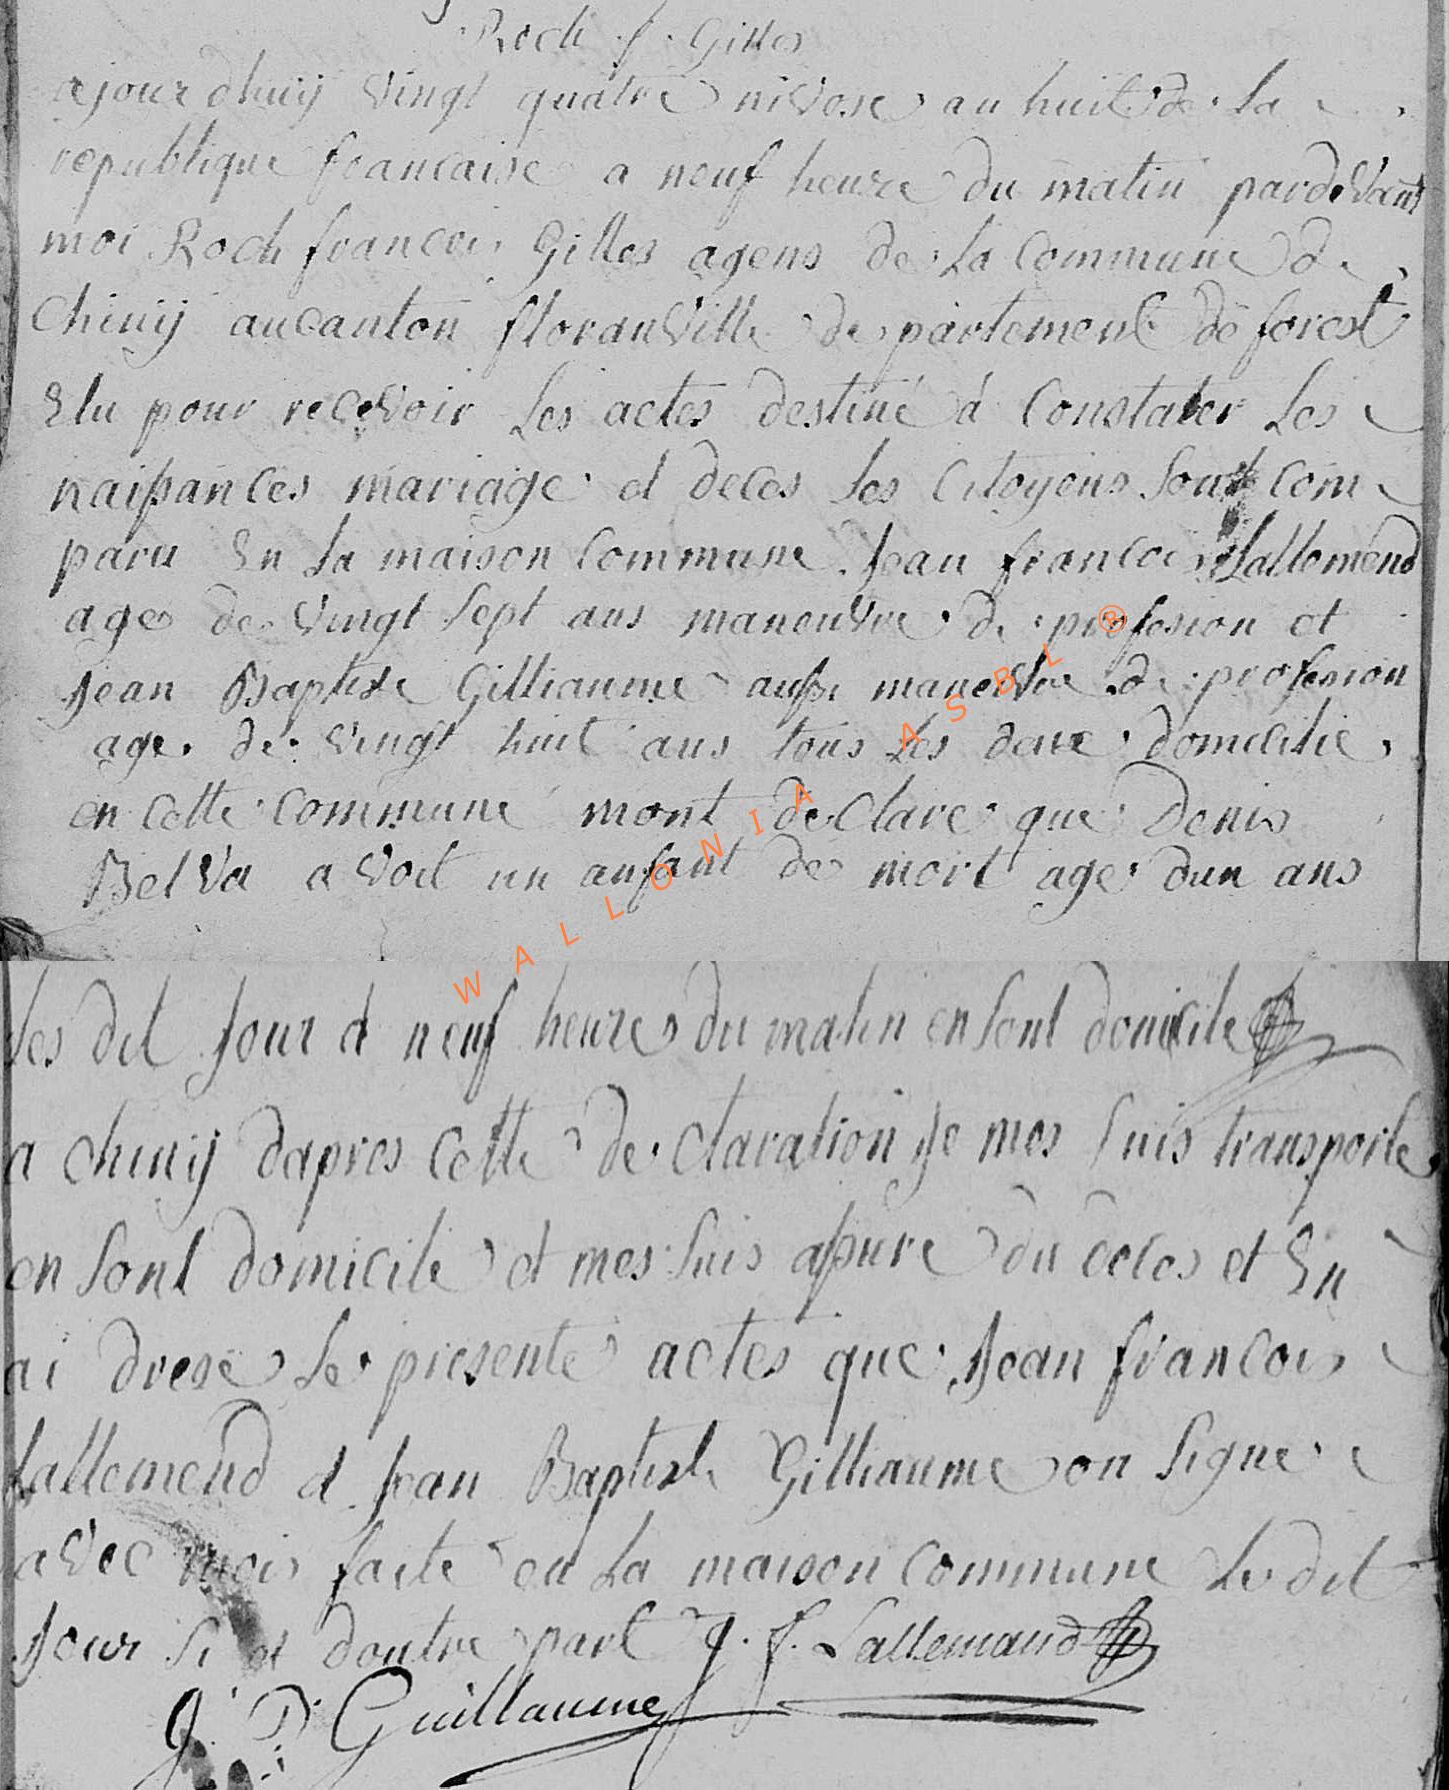 Roch f. Gilles
ajourdhuij vingt quatre nivose an huit de la
republique francaise a neuf heure du matin pardevant
moi Roch francois Gilles agens de la commune de
Chinij au canton floranville departement de forest
Elu pour recevoir les actes destiné a Constater les
naissances mariage et deces les Citoyens sont com
paru En la maison commune Jean francois Lallemend
age de vingt sept ans maneuvre de profesion et
Jean Baptiste Gilliaume aussi maneuvre de profesion
age de vingt huit ans tous les deux domicilie
en cette commune mont declare que Denis
Belva avoit un anfant de mort age dun ans
les dit Jour a neuf heure du matin en sont domicile
a chinij dapres cette declaration Je mes suis transporte
en sont domicile et mes suis assure du deces et En
ai drese le presente actes que Jean francois
Lallemend et Jean Baptiste Gilliaume on signe
avec mois faite en la maison commune le dit
Jour si et dautre part J. f. Lallemand
J. B. Guillaume
WALLONIA ASBL ®